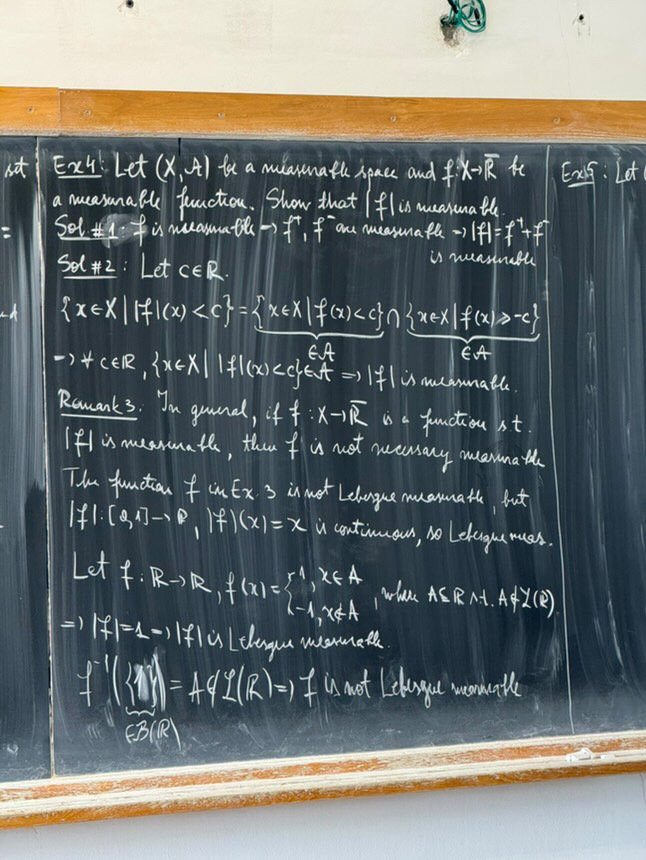 st
=
Ex 4: Let (X, A) be a measurable space and f: X→R̅ be
a measurable function. Show that |f| is measurable.
Sol #1: f is measurable → f⁺, f⁻ are measurable → |f| = f⁺ + f⁻
is measurable
Sol #2: Let c∈ℝ.
{x∈X | |f|(x) < c} = {x∈X | f(x) < c} ∩ {x∈X | f(x) > -c}
∈A ∈A
→ ∀ c∈ℝ, {x∈X | |f|(x) < c} ∈ A ⇒ |f| is measurable.
Remark 3: In general, if f: X→R̅ is a function s.t.
|f| is measurable, then f is not necessary measurable
The function f in Ex. 3 is not Lebesgue measurable, but
|f|: [0,1] → ℝ, |f|(x) = x is continuous, so Lebesgue meas.
Let f: ℝ→ℝ, f(x) = { 1, x∈A
-1, x∉A , where A⊆ℝ s.t. A∉ℒ(ℝ).
⇒ |f| = 1 → |f| is Lebesgue measurable.
f⁻¹({1}) = A∉ℒ(ℝ) ⇒ f is not Lebesgue measurable
∈B(ℝ)
Ex 5: Let